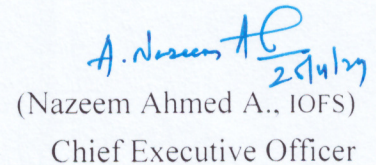 A. Nazeem A
(Nazeem Ahmed A., IOFS)
Chief Executive Officer